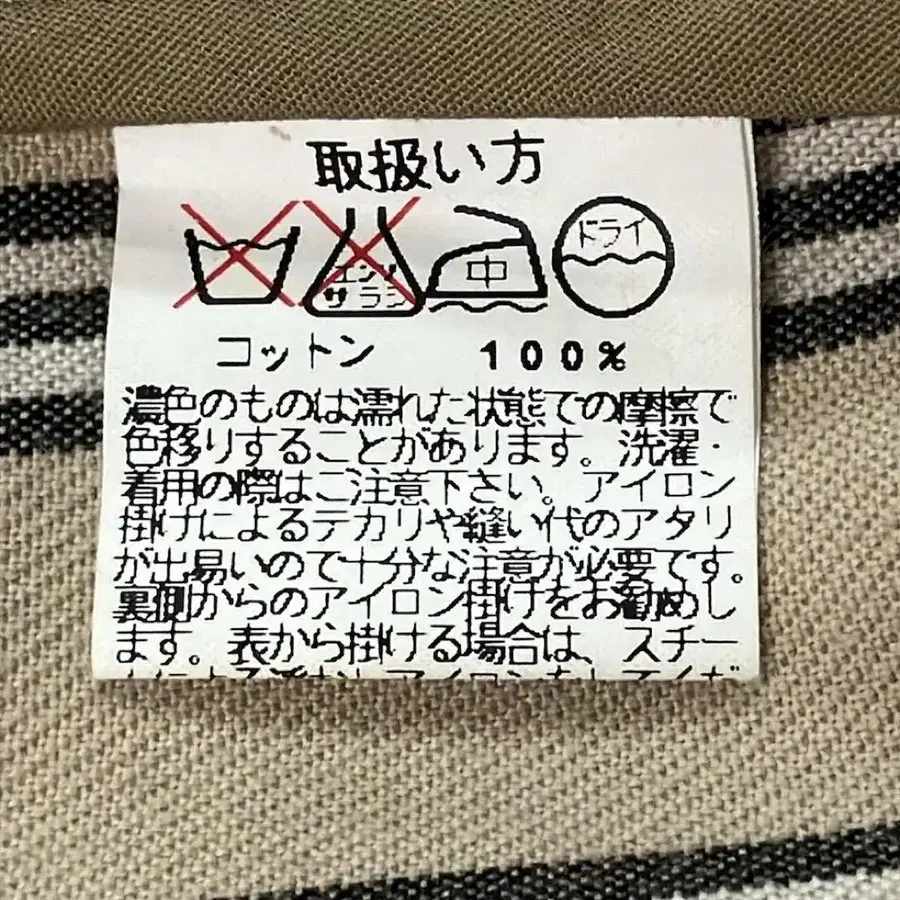 取扱い方
エンソ サラシ 中 ドライ
コットン 100%
濃色のものは濡れた状態での摩擦で
色移りすることがあります。洗濯・
着用の際はご注意下さい。アイロン
掛けによるテカリや縫い代のアタリ
が出易いので十分な注意が必要です。
裏側からのアイロン掛けをお勧めし
ます。表から掛ける場合は、スチー